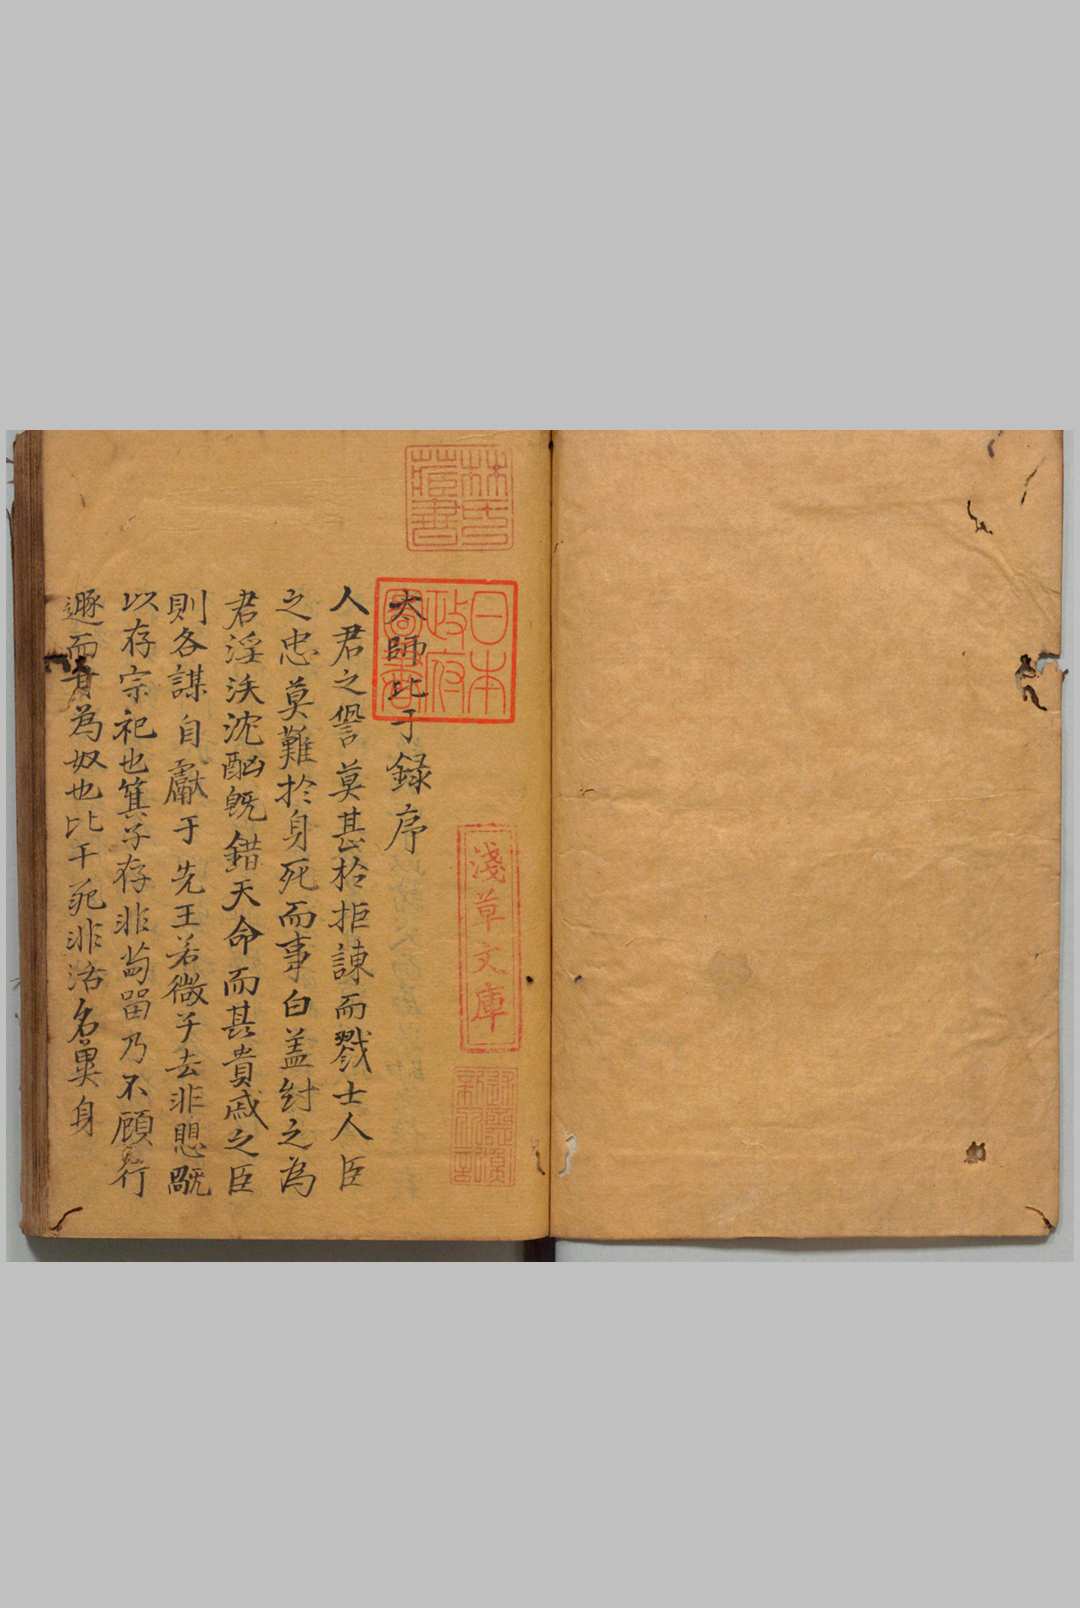 林氏藏書
日本政府圖書
淺草文庫
太師比干録序
人君之譽莫甚於拒諫而戮士人臣
之忠莫難於身死而事白盖紂之為
君淫泆沈酗既錯天命而其貴戚之臣
則各謀自獻于先王若微子去非愳
以存宗祀也箕子存非苟留乃不顧行
遯而身為奴也比干死非沽名異身